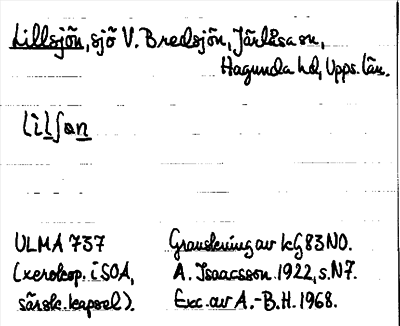 Lillsjön, sjö V. Bredsjön, Järlåsa sn,
Hagunda hd, Upps. län.
lilʃøn
ULMA 737
(xerokop. i SOA,
särsk. kapsel).
Granskning av kG 83NO.
A. Isaacsson 1922, s. N7.
Exc. av A.-B.H. 1968.